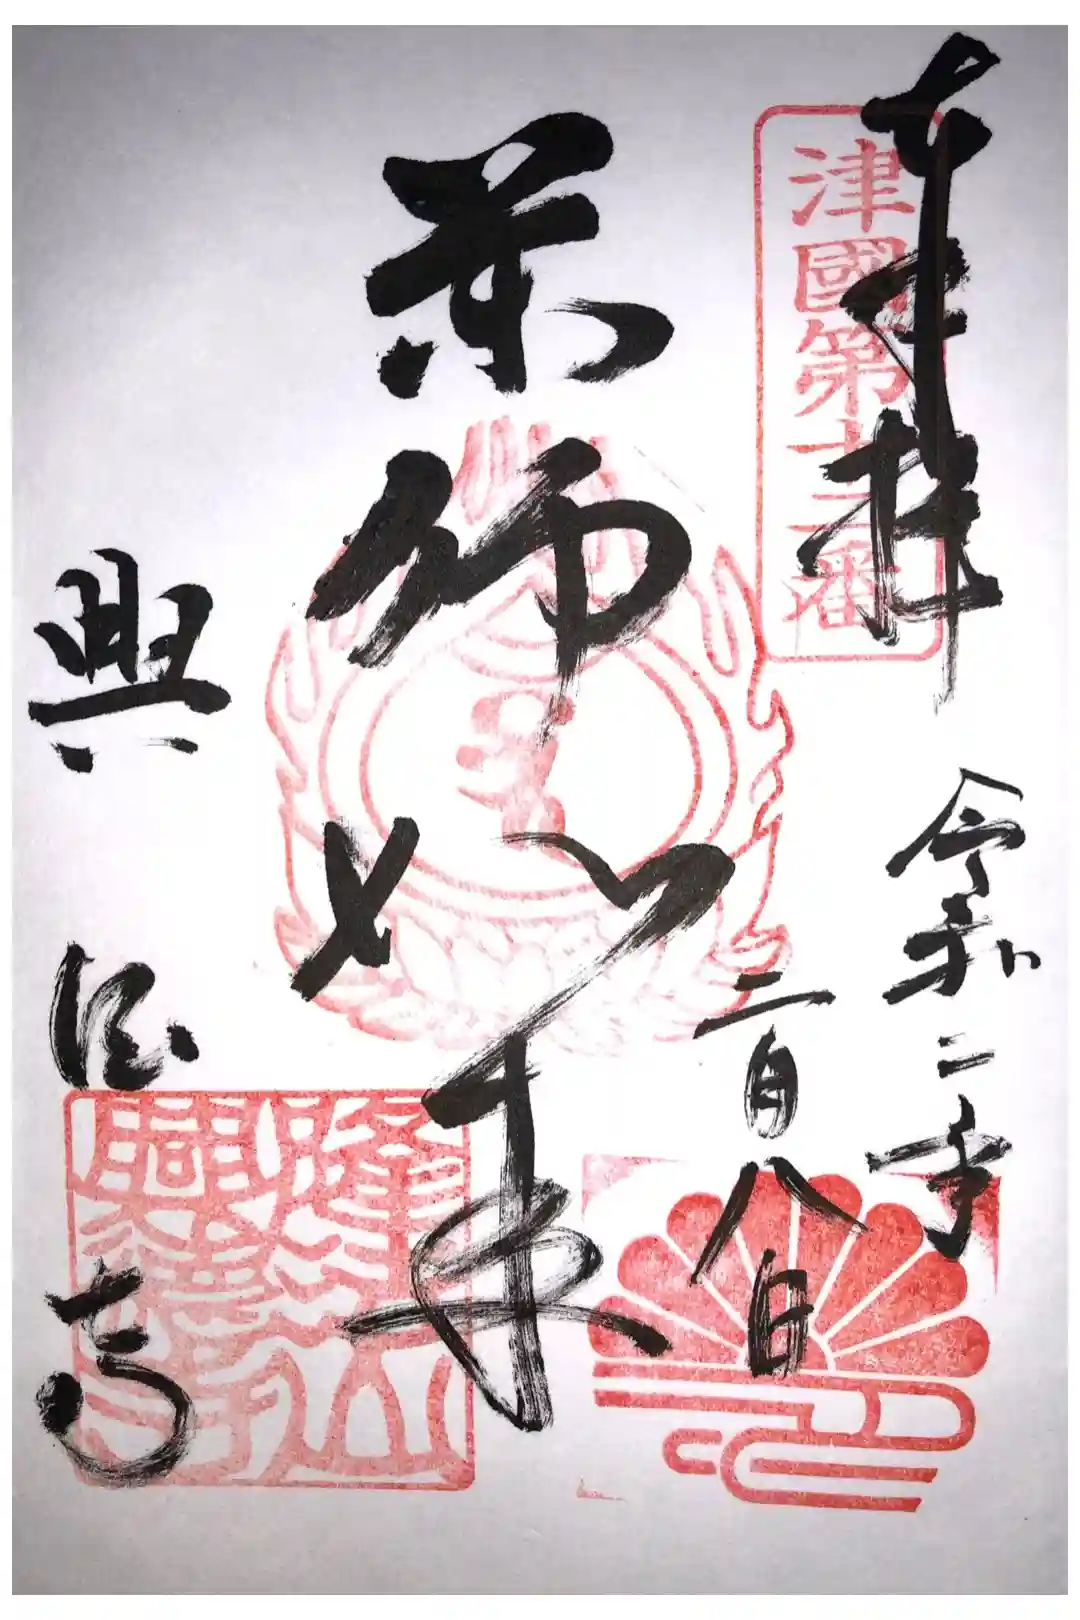 奉拝
津國第十二番
令和二年
二月八日
薬師如来
興徳寺
興徳寺